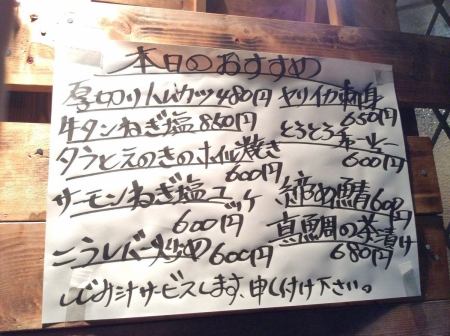 本日のおすすめ
厚切りハムカツ480円
牛タンねぎ塩860円
タラとえのきのホイル焼き
600円
サーモンねぎ塩ユッケ
600円
ニラレバー炒め600円
ヤリイカ刺身
650円
とろとろチャーシュー
600円
締め鯖600円
真鯛の茶漬け
680円
しじみ汁サービスします、申し付け下さい。